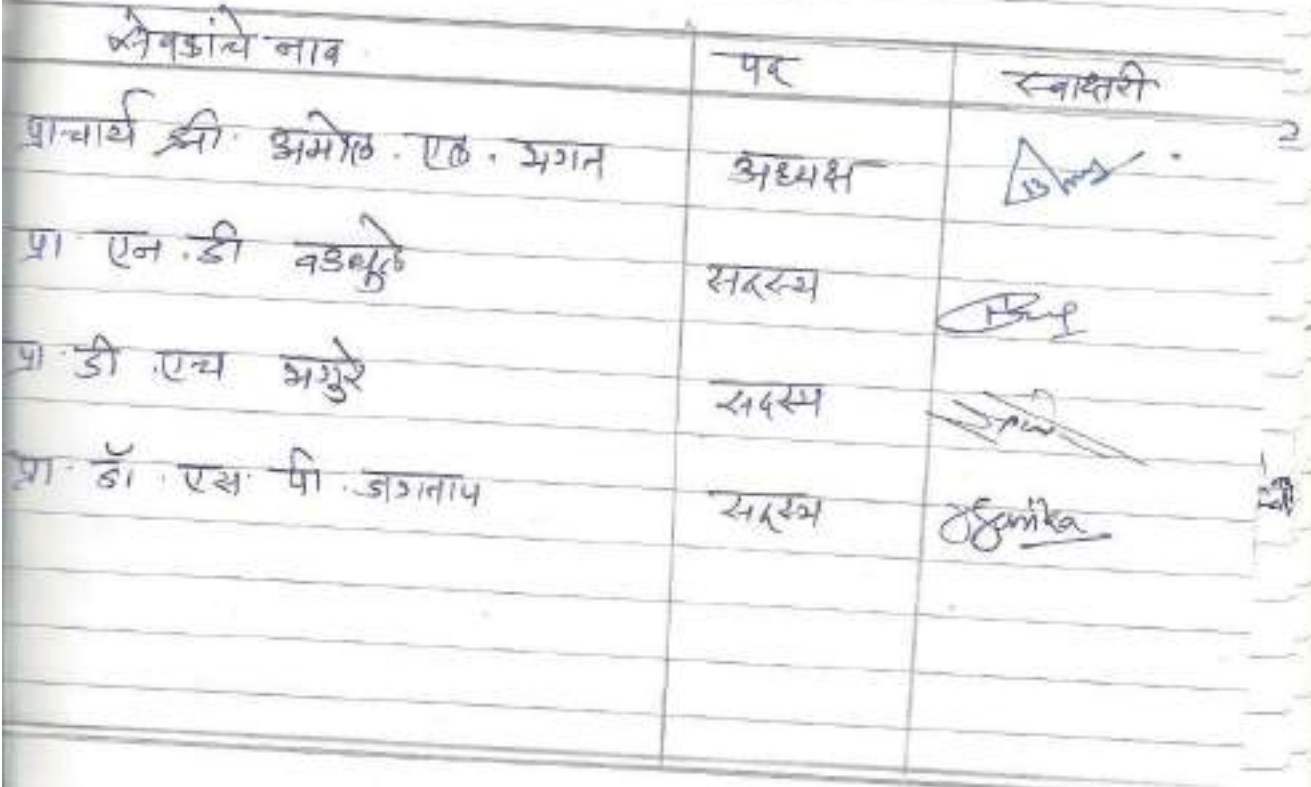 सेवकांचे नाव पद स्वाक्षरी
प्राचार्य श्री. अमोल. एल. भगत अध्यक्ष
प्रा एन.डी सदस्य
प्रा. डी .एच भगुरे सदस्य
प्रा. डॉ. एस. पी. जगताप सदस्य